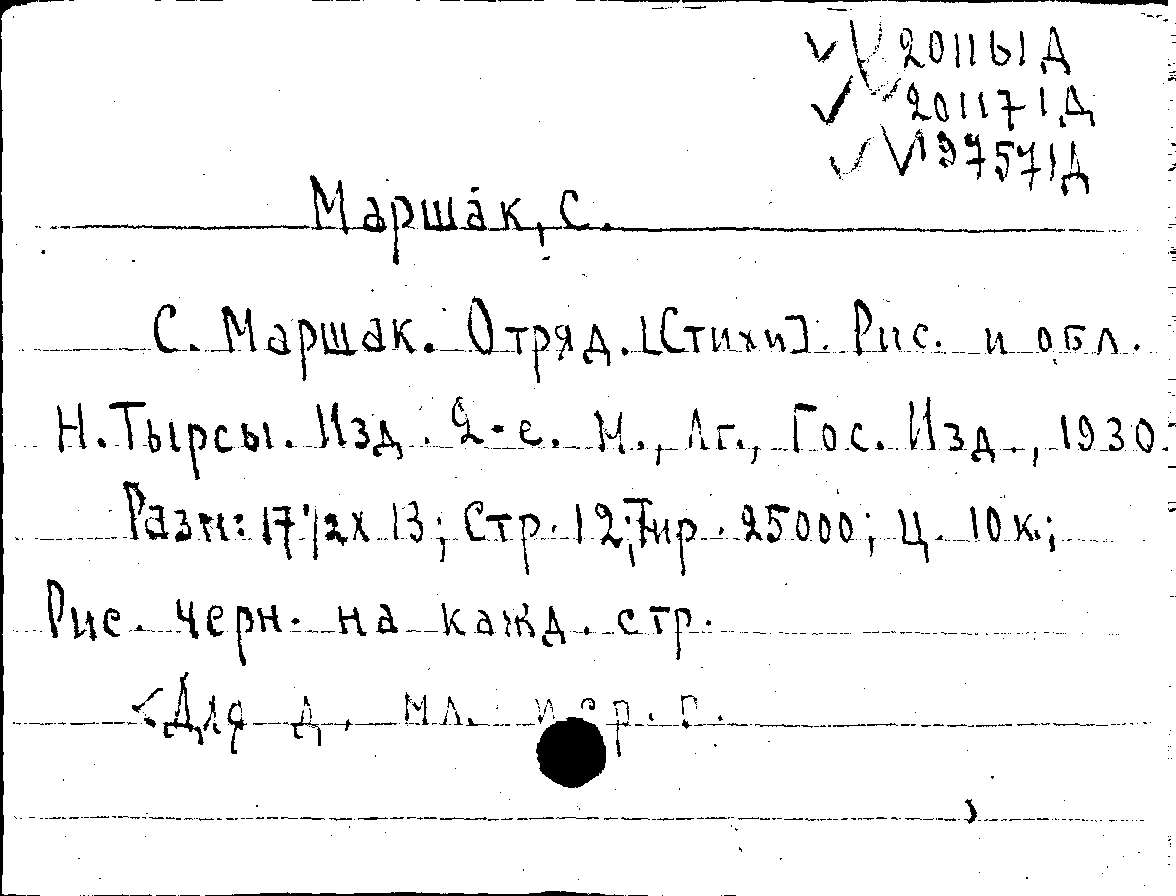 201161Д
201171Д
197571Д
Маршак, С.
С. Маршак. Отряд. [Стихи]. Рис. и обл.
Н. Тырсы. Изд. 2-е. М., Лг., Гос. Изд., 1930.
Разм: 17 1/2 х 13; Стр. 12; Тир. 25000; ц. 10 к.;
Рис. черн. на кажд. стр.
<Для д. мл. и ср. г.